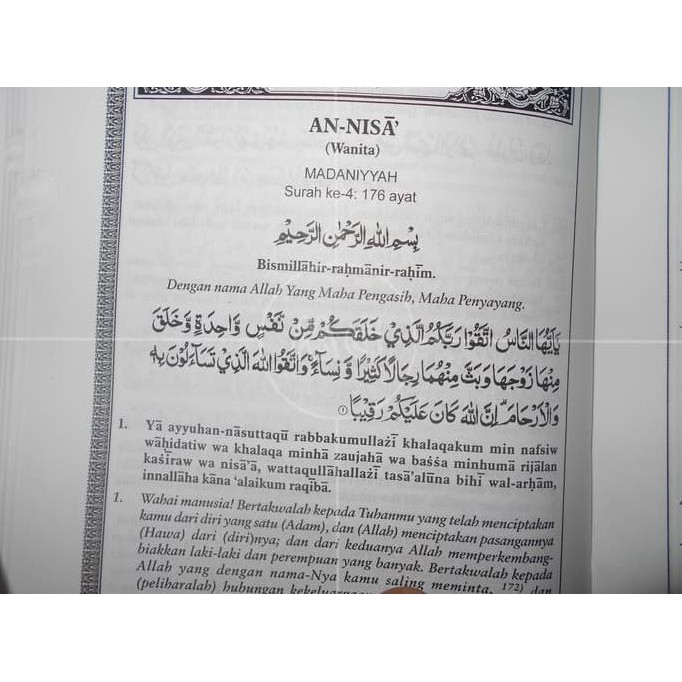 AN-NISĀ’
(Wanita)
MADANIYYAH
Surah ke-4: 176 ayat
بِسْمِ اللهِ الرَّحْمٰنِ الرَّحِيْمِ
Bismillāhir-raḥmānir-raḥīm.
Dengan nama Allah Yang Maha Pengasih, Maha Penyayang.
يٰٓاَيُّهَا النَّاسُ اتَّقُوْا رَبَّكُمُ الَّذِيْ خَلَقَكُمْ مِّنْ نَّفْسٍ وَّاحِدَةٍ وَّخَلَقَ
مِنْهَا زَوْجَهَا وَبَثَّ مِنْهُمَا رِجَالًا كَثِيْرًا وَّنِسَاۤءً ۚ وَاتَّقُوا اللهَ الَّذِيْ تَسَاۤءَلُوْنَ بِهٖ
وَالْاَرْحَامَ ۗ اِنَّ اللهَ كَانَ عَلَيْكُمْ رَقِيْبًا ١
1. Yā ayyuhan-nāsuttaqū rabbakumullażī khalaqakum min nafsiw
wāḥidatiw wa khalaqa minhā zaujahā wa baṡṡa minhumā rijālan
kaṡīraw wa nisā’ā, wattaqullāhallażī tasā’alūna bihī wal-arḥam,
innallāha kāna ‘alaikum raqībā.
1. Wahai manusia! Bertakwalah kepada Tuhanmu yang telah menciptakan
kamu dari diri yang satu (Adam), dan (Allah) menciptakan pasangannya
(Hawa) dari (diri)nya; dan dari keduanya Allah memperkembang-
biakkan laki-laki dan perempuan yang banyak. Bertakwalah kepada
Allah yang dengan nama-Nya kamu saling meminta, 172) dan
(peliharalah) hubungan kekeluargaan